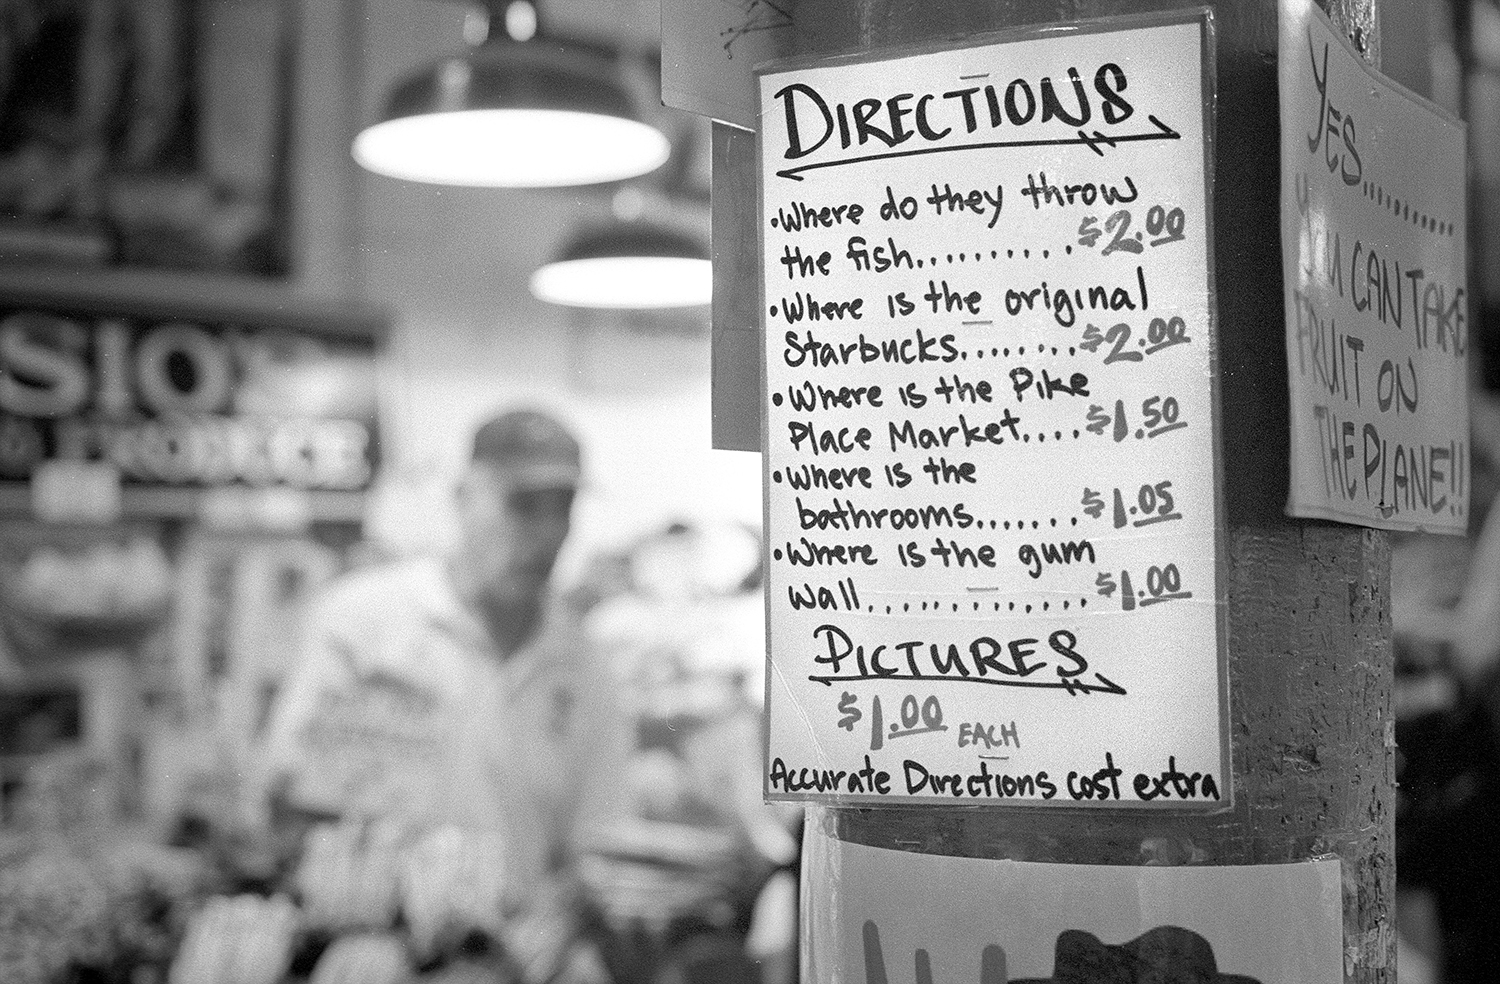 DIRECTIONS
•Where do they throw
the fish.......... $2.00
•Where is the original
Starbucks........ $2.00
•Where is the Pike
Place Market.... $1.50
•Where is the
bathrooms....... $1.05
•Where is the gum
wall............. $1.00
PICTURES
$1.00 EACH
Accurate Directions cost extra
YES..........
YOU CAN TAKE
FRUIT ON
THE PLANE!!
SIO
& PRODUCE